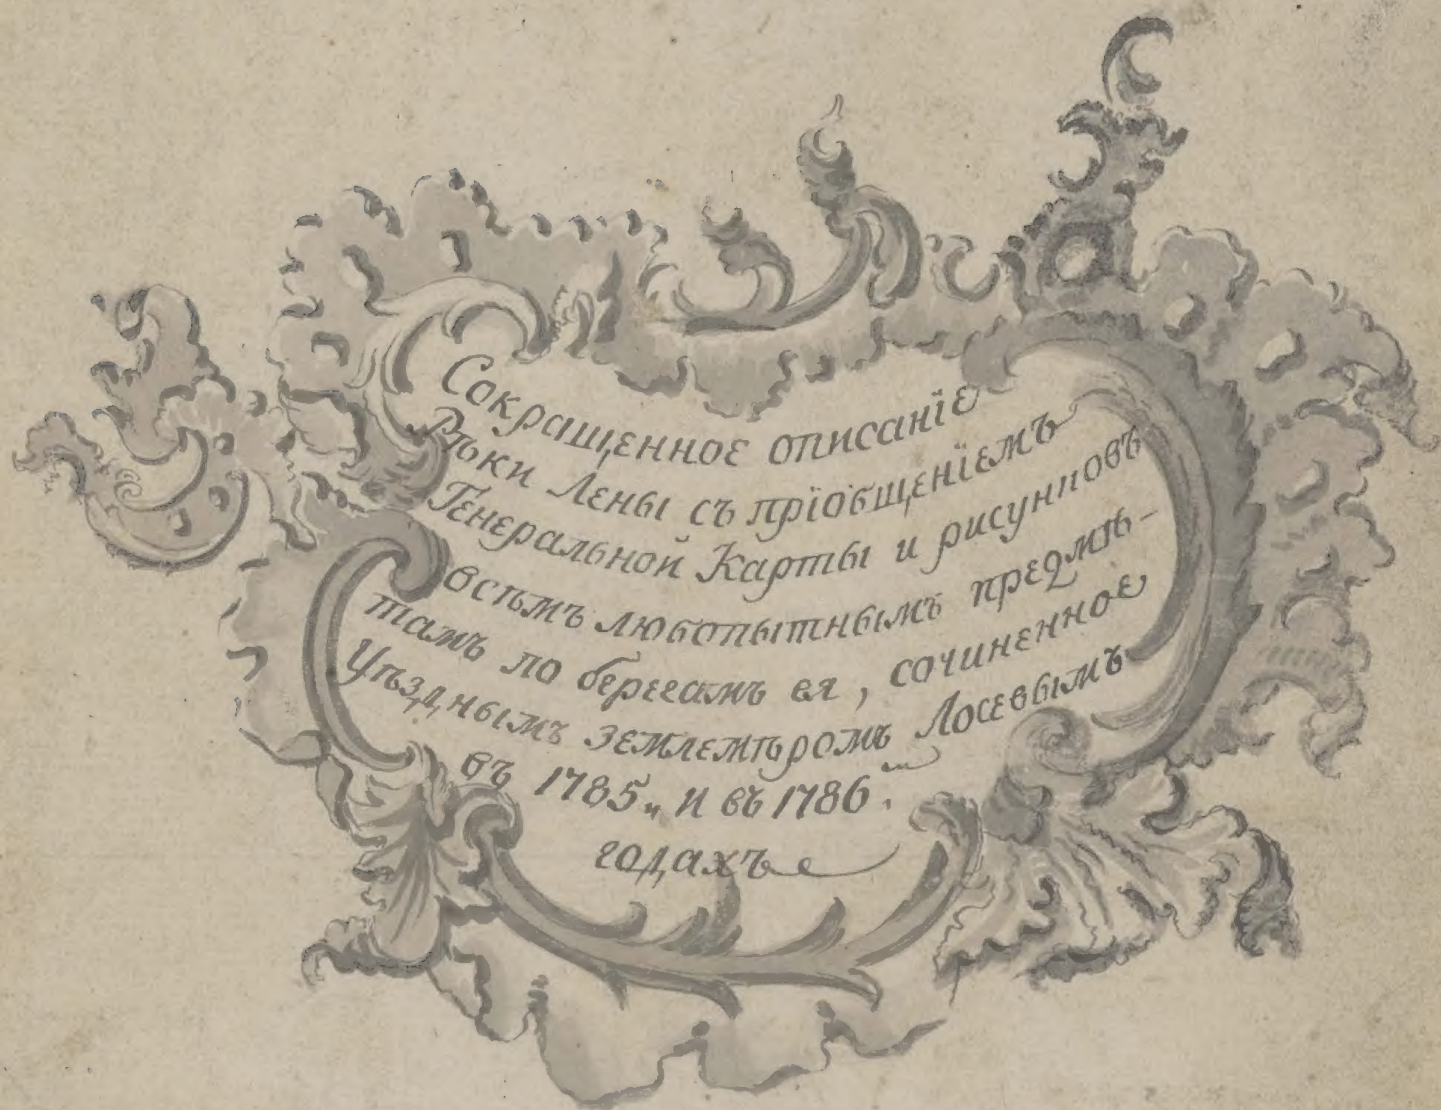 Сокращенное описанїе
Рѣки Лены съ прїобщенїемъ
Генеральной Карты и рисунковъ
всѣмъ любопытнымъ предмѣ-
тамъ по берегамъ ея, сочиненное
Уѣзднымъ землемѣромъ Лосевымъ
въ 1785„ и въ 1786.
годахъ